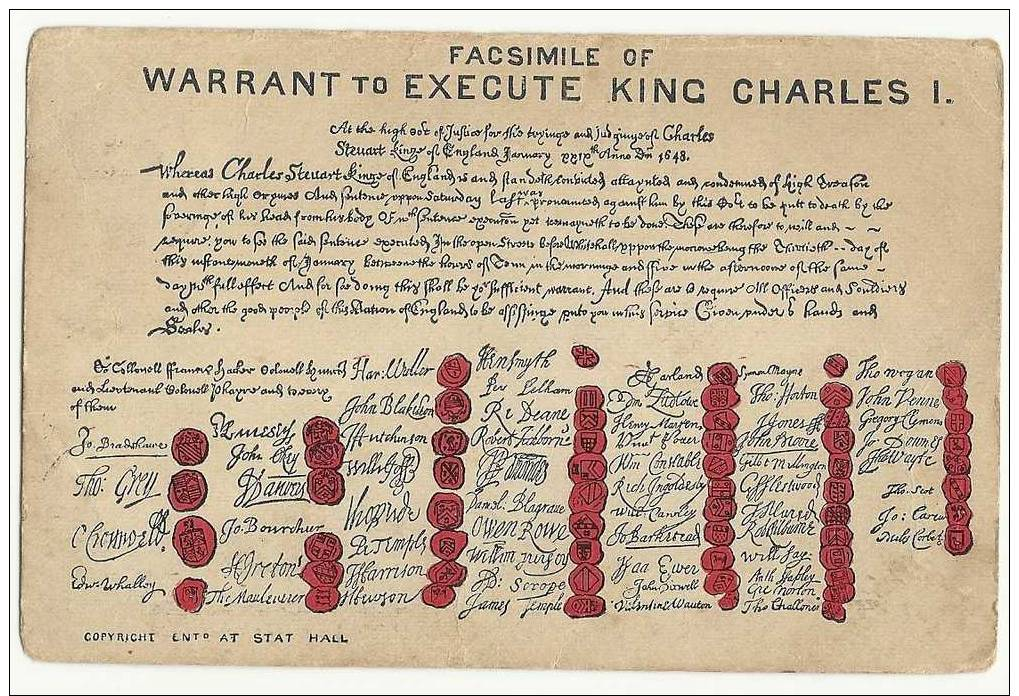 FACSIMILE OF
WARRANT TO EXECUTE KING CHARLES I.
At the high Cort of Justice for the tryinge and judginge of Charles
Steuart kinge of England January xxixth Anno Dni 1648.
Whereas Charles Steuart kinge of England is and standeth convicted attaynted and condemned of high Treason
and other high Crymes And sentence uppon Saturday last was pronounced against him by this Cort to be putt to death by the
severinge of his head from his body Of wch sentence execucon yet remayneth to be done. These are therefore to will and
require you to see the said sentence executed In the open Streete before Whitehall uppon the morrowe being the Thirtieth day of
this instante moneth of January betweene the hours of Tenn in the morninge and ffive in the afternoone of the same
day wth full effect And for soe doing this shall be yor sufficient warrant. And these are to require All Officers and Souldiers
and other the good people of this Nation of England to be assistinge unto you in this service Given under or hands and
Seales.
To Collonell ffrancis Hacker Colonell Huncks
and Lieutenant Colonell Phayre and to every
of them
Jo. Bradshawe
Tho: Grey
O Cromwell
Edw. Whalley
M Livesey
John Okey
J Danvers
Jo Bourchier
H Ireton
Tho Mauleverer
Har: Waller
John Blakiston
J Hutchinson
Willi Goff
Tho Pride
Pe Temple
T Harrison
J Hewson
Hen Smyth
Per Pelham
Ri Deane
Robert Tichborne
Daniel Blagrave
Owen Rowe
William Purfoy
Ad: Scrope
James Temple
A Garland
Edm Ludlowe
Henry Marten
Vinct Potter
Wm Constable
Rich Ingoldesby
Will Cawley
Jo Barkstead
Isaa Ewer
John Dixwell
Valentine Wauton
Symon Mayne
Tho: Horton
J Jones
John Moore
Gilbt Millington
G Fleetwood
J Alured
Rob Lilburne
Will Say
Anth Stapley
Gre Norton
Tho Challoner
Tho Wogan
John Venne
Gregory Clemens
Jo Downes
Tho Wayte
Tho. Scot
Jo: Carew
Miles Corbet
COPYRIGHT ENTD AT STAT HALL